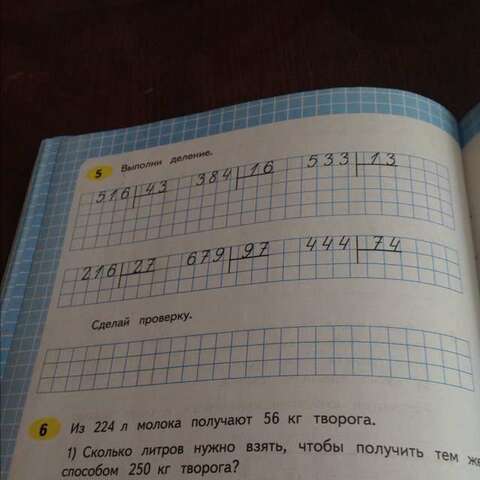 5 Выполни деление.
516 43 384 16 533 13
216 27 679 97 444 74
Сделай проверку.
6 Из 224 л молока получают 56 кг творога.
1) Сколько литров нужно взять, чтобы получить тем же
способом 250 кг творога?